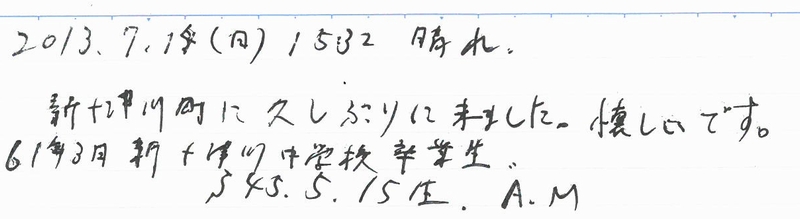 2013.7.14(日) 1532 晴れ.
新十津川町に久しぶりに来ました。懐しいです。
61年3月 新十津川中学校卒業生.
S45.5.15生. A.M